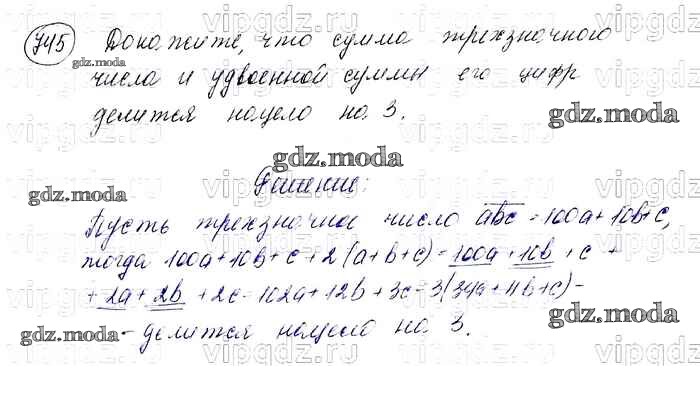 745 Докажите, что сумма трехзначного
числа и удвоенной суммы его цифр
делится нацело на 3.
Решение:
Пусть трехзначное число abc = 100a + 10b + c,
тогда 100a + 10b + c + 2(a + b + c) = 100a + 10b + c +
+ 2a + 2b + 2c = 102a + 12b + 3c = 3(34a + 4b + c) -
- делится нацело на 3.
gdz.moda
gdz.moda
gdz.moda
gdz.moda
gdz.moda
gdz.moda
gdz.moda
vipgdz.ru